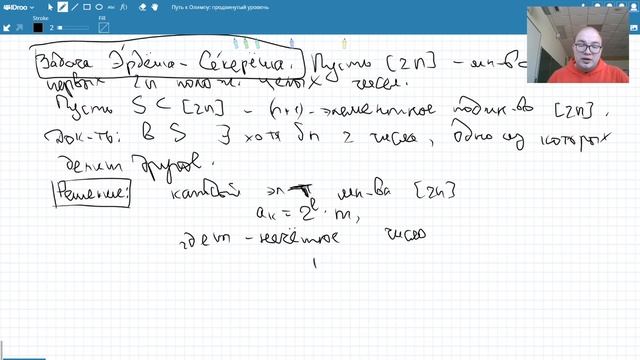 Путь к Олимпу: продвинутый уровень
Stroke
Fill
2
Задача Эрдёша-Секереша. Пусть [2n] - мн-во
первых 2n полож. целых чисел.
Пусть S ⊂ [2n] - (n+1)-элементное подмн-во [2n].
Док-ть: в S ∃ хотя бы 2 числа, одно из которых
делит другое.
Решение: каждый эл-т мн-ва [2n]
a_k = 2^l · m,
где m - нечётное число